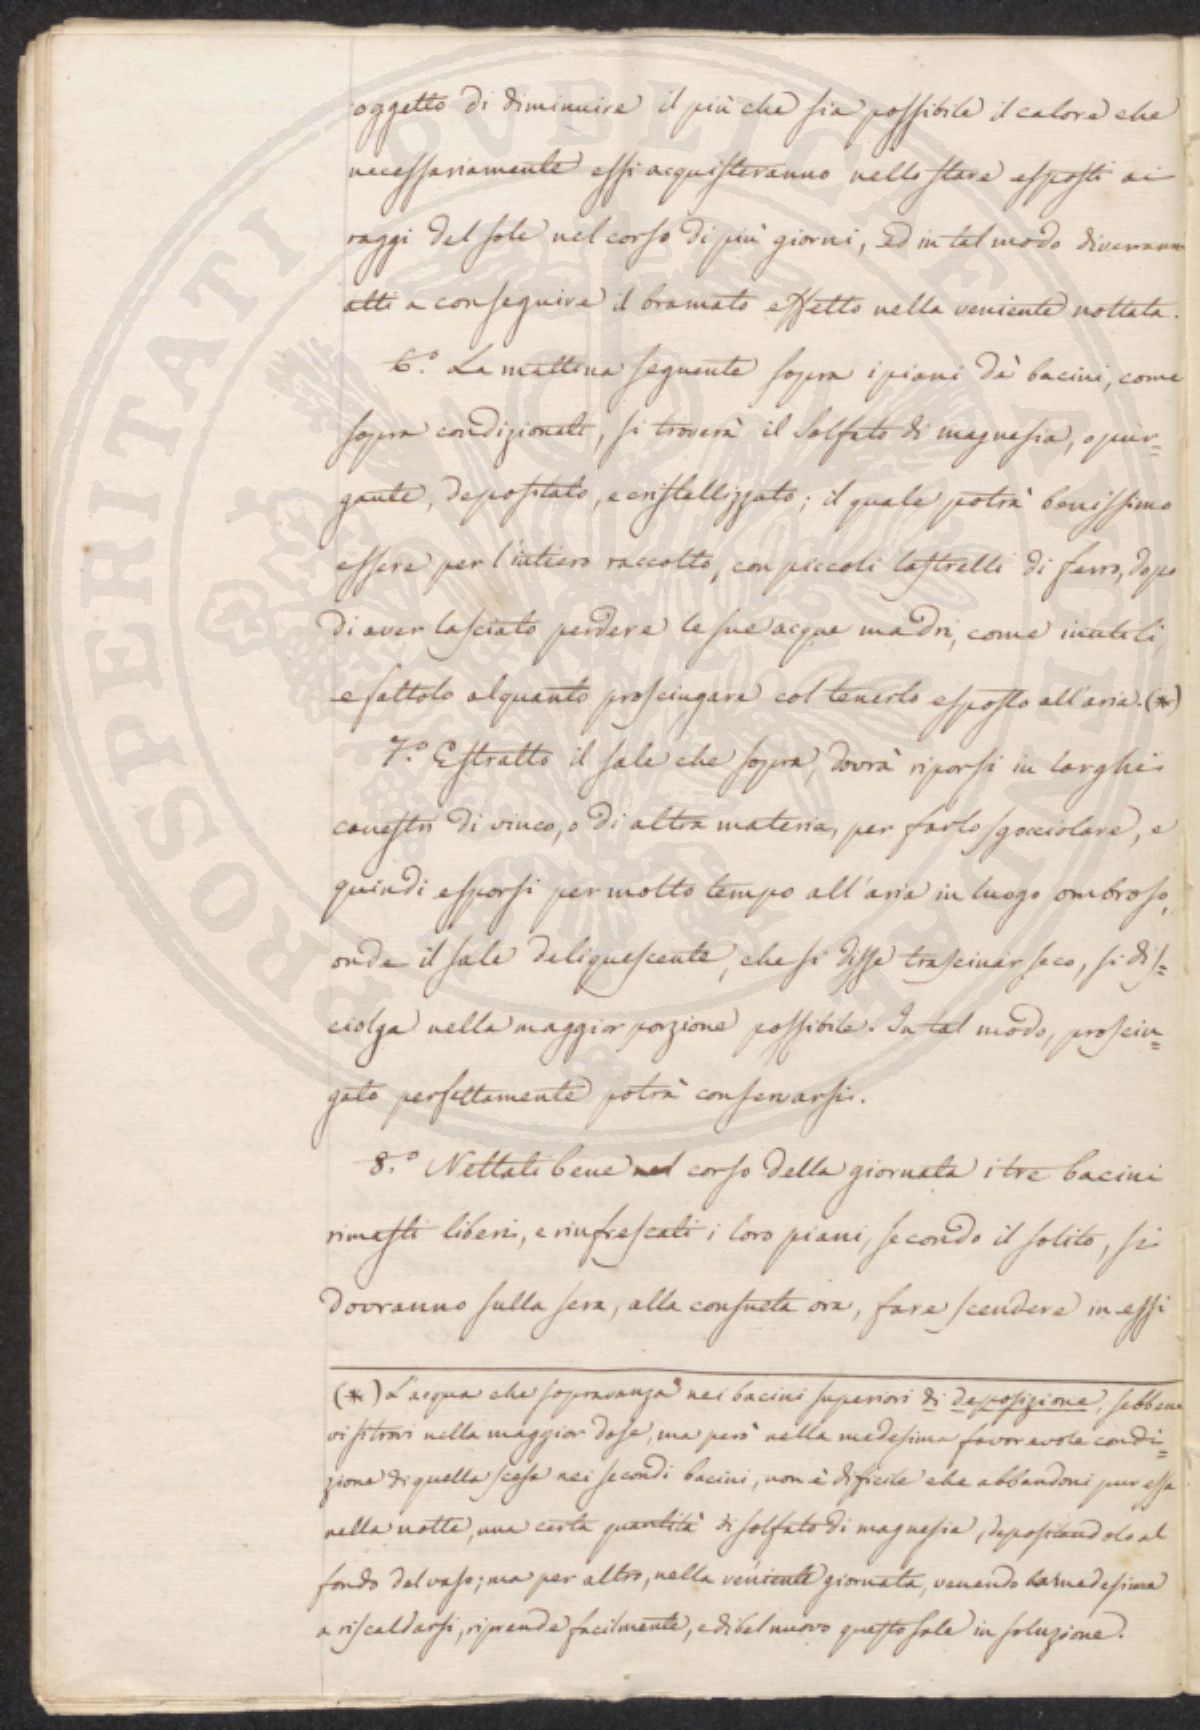 oggetto di diminuire il più che sia possibile il calore che
necessariamente essi acquisteranno nello stare esposti ai
raggi del sole nel corso di più giorni, ed in tal modo diverranno
atti a conseguire il bramato effetto nella veniente nottata.
6.º La mattina seguente sopra i piani dà bacini, come
sopra condizionati, si troverà il Solfato di magnesia, o pur=
gante, depositato, e cristallizzato; il quale potrà benissimo
essere per l'intiero raccolto, con piccoli lastrelli di ferro, dopo
di aver lasciato perdere le sue acque madri, come inutili,
e fattolo alquanto prosciugare col tenerlo esposto all'aria. (*)
7.º Estratto il sale che sopra, dovrà riporsi in larghi
canestri di vinco, o di altra materia, per farlo sgocciolare, e
quindi esporsi per molto tempo all'aria in luogo ombroso,
onde il sale deliquescente, che si disse trascinar seco, si dis=
ciolga nella maggior porzione possibile. In tal modo, prosciu=
gato perfettamente potrà conservarsi.
8.º Nettati bene nel corso della giornata i tre bacini
rimasti liberi, e rinfrescati i loro piani, secondo il solito, si
dovranno sulla sera, alla consueta ora, fare scendere in essi
(*) L'acqua che sopravanza nei bacini superiori di deposizione, sebbene
vi si trovi nella maggior dose, ma però nella medesima favorevole condi=
zione di quella scesa nei secondi bacini, non è difficile che abbandoni pur essa
nella notte, una certa quantità di solfato di magnesia, depositandolo al
fondo del vaso; ma per altro, nella veniente giornata, venendo la medesima
a riscaldarsi, riprende facilmente, e di bel nuovo questo sale in soluzione.
PROSPERITATI PVBLICAE AVGENDAE